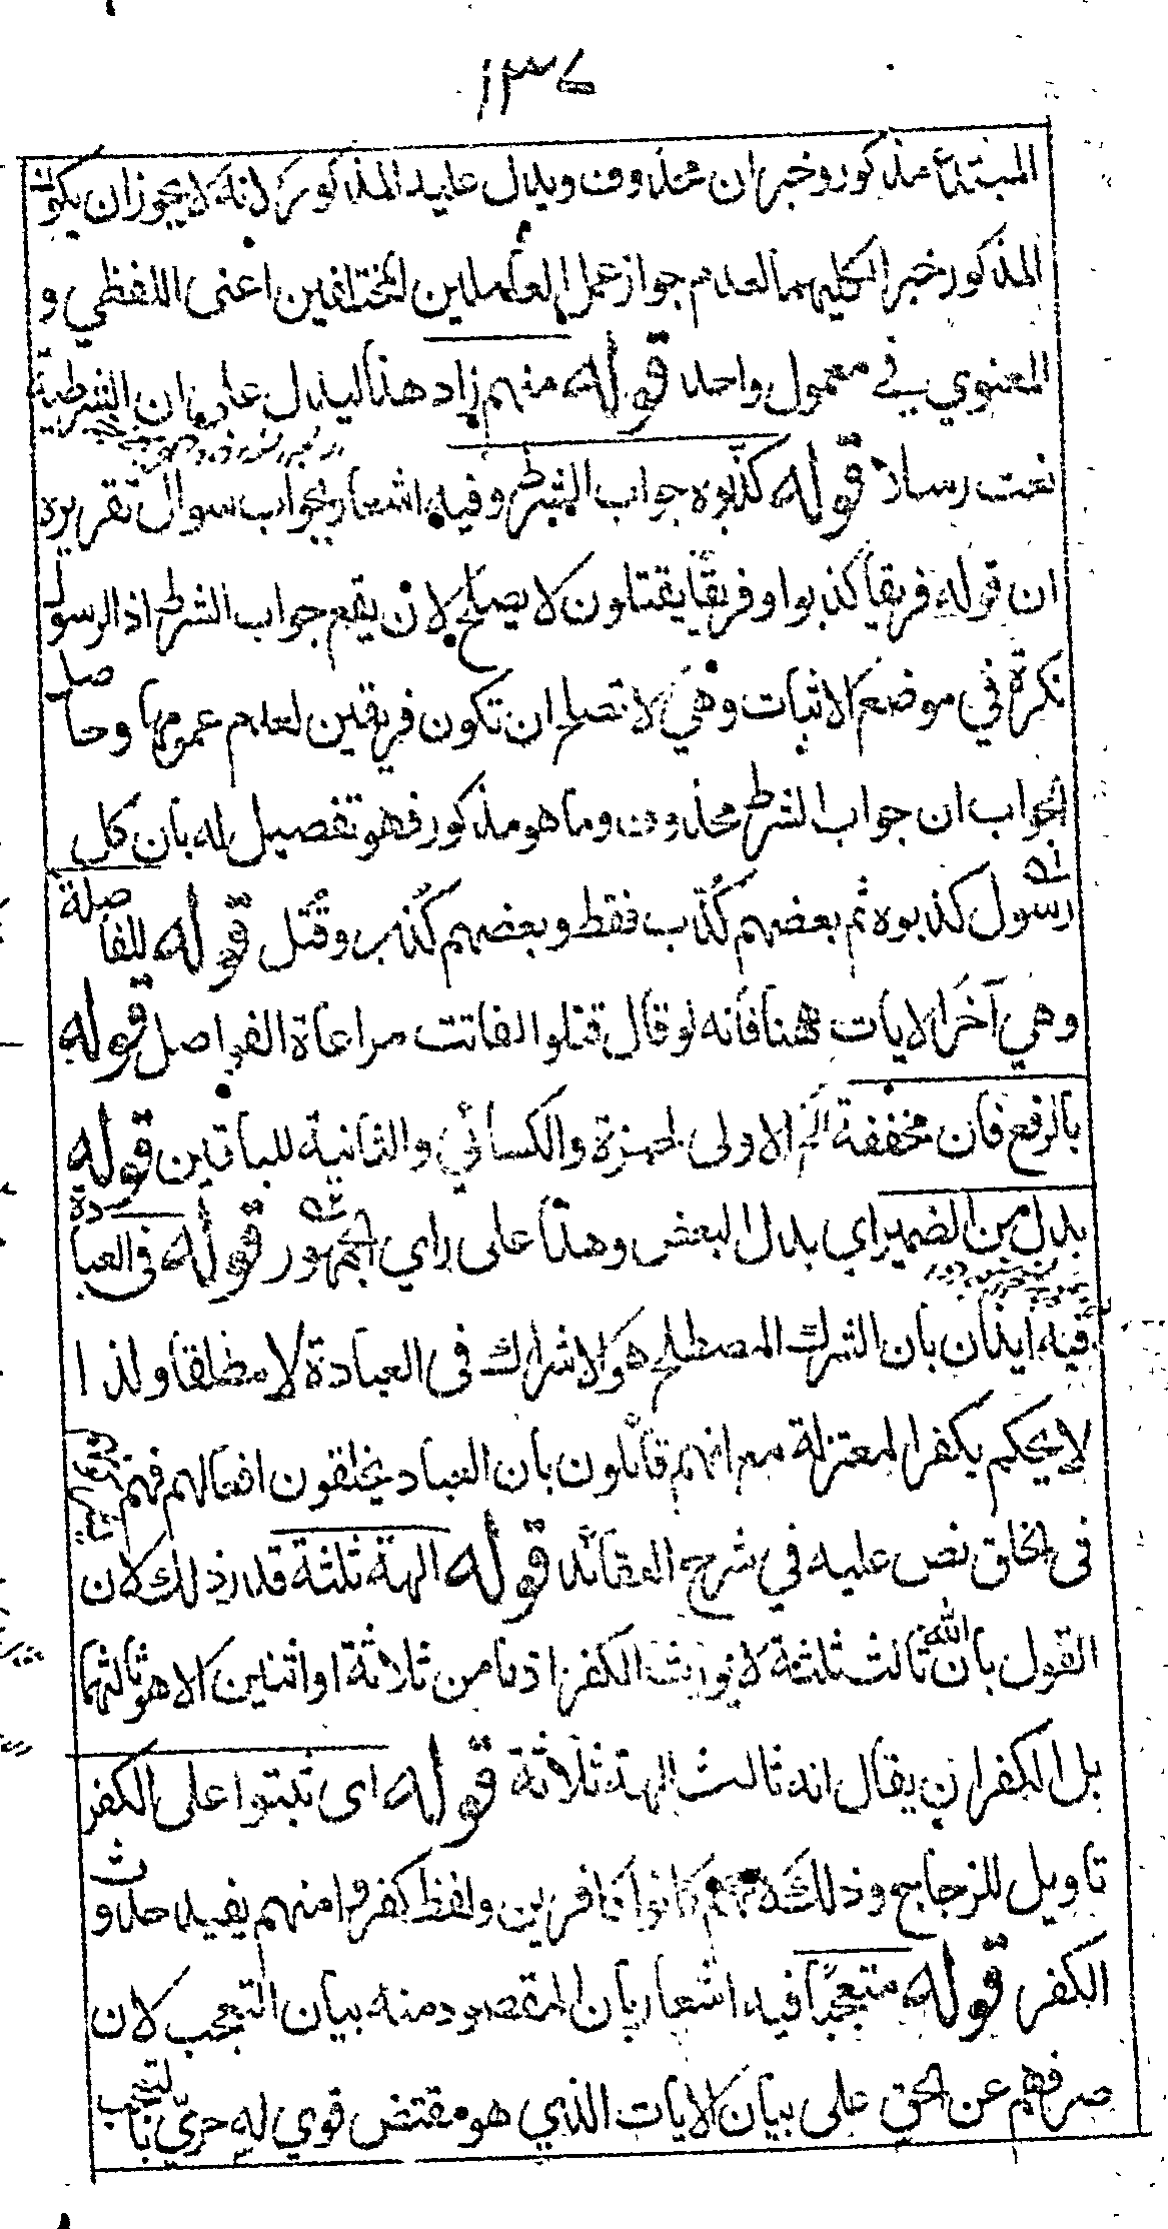 ١٣٧
المبتداء مذكور وخبر ان محذوف ويدل عليه المذكور لانه لا يجوز ان يكون
المذكور خبرا لكليهما لعدم جواز عمل العاملين المختلفين اعنى اللفظي و
المعنوي في معمول واحد قوله منهم زاد هذا ليدل على ان الشرطية
نعت رسلا قوله كذّبوه جواب الشرط وفيه اشعار بجواب سوال تقريره
ان قوله فريقا كذبوا وفريقًا يقتلون لا يصلح لان يقع جواب الشرط اذ الرسول
نكرة في موضع الاثبات وهي لا تصلح ان تكون فريقين لعدم عمومها وحاصل
الجواب ان جواب الشرط محذوف وما هو مذكور فهو تفصيل له بان كل
رسول كذبوه ثم بعضهم كُذّب فقط وبعضهم كُذّب وقُتل قوله للفاصلة
وهي آخر الايات ههنا فانه لو قال قتلوا لفاتت مراعاة الفواصل قوله
بالرفع فان مخففة الخ الاولى لحمزة والكسائي والثانية للباقين قوله
بدل من الضمير اي بدل البعض وهذا على راي الجمهور قوله فى العبادة
فيه ايذان بان الشرك المصطلح هو الاشراك فى العبادة لا مطلقا ولذا
لا يحكم بكفر المعتزلة مع انهم قائلون بان العباد يخلقون افعالهم فهم
فى الخلق نص عليه في شرح العقائد قوله الهة ثلثة قدر ذلك لان
القول بان الله ثالث ثلثة لا يورث الكفر اذ ما من ثلاثة او اثنين الا هو ثالثهما
بل الكفر ان يقال انه ثالث الهة ثلاثة قوله اى ثبتوا على الكفر
تاويل للزجاج وذلك لانهم كانوا كافرين ولفظ كفروا منهم يفيد حدوث
الكفر قوله متعجبًا فيه اشعار بان المقصود منه بيان التعجب لان
صرفهم عن الحق على بيان الايات الذي هو مقتض قوي له حريّ بالتعجب